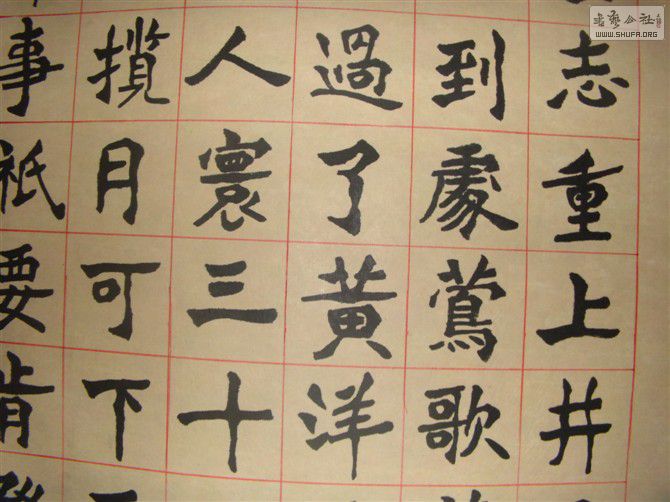 志重上井
到處鶯歌
過了黄洋
人寰三十
攬月可下
事祇要肯
書藝公社
WWW.SHUFA.ORG